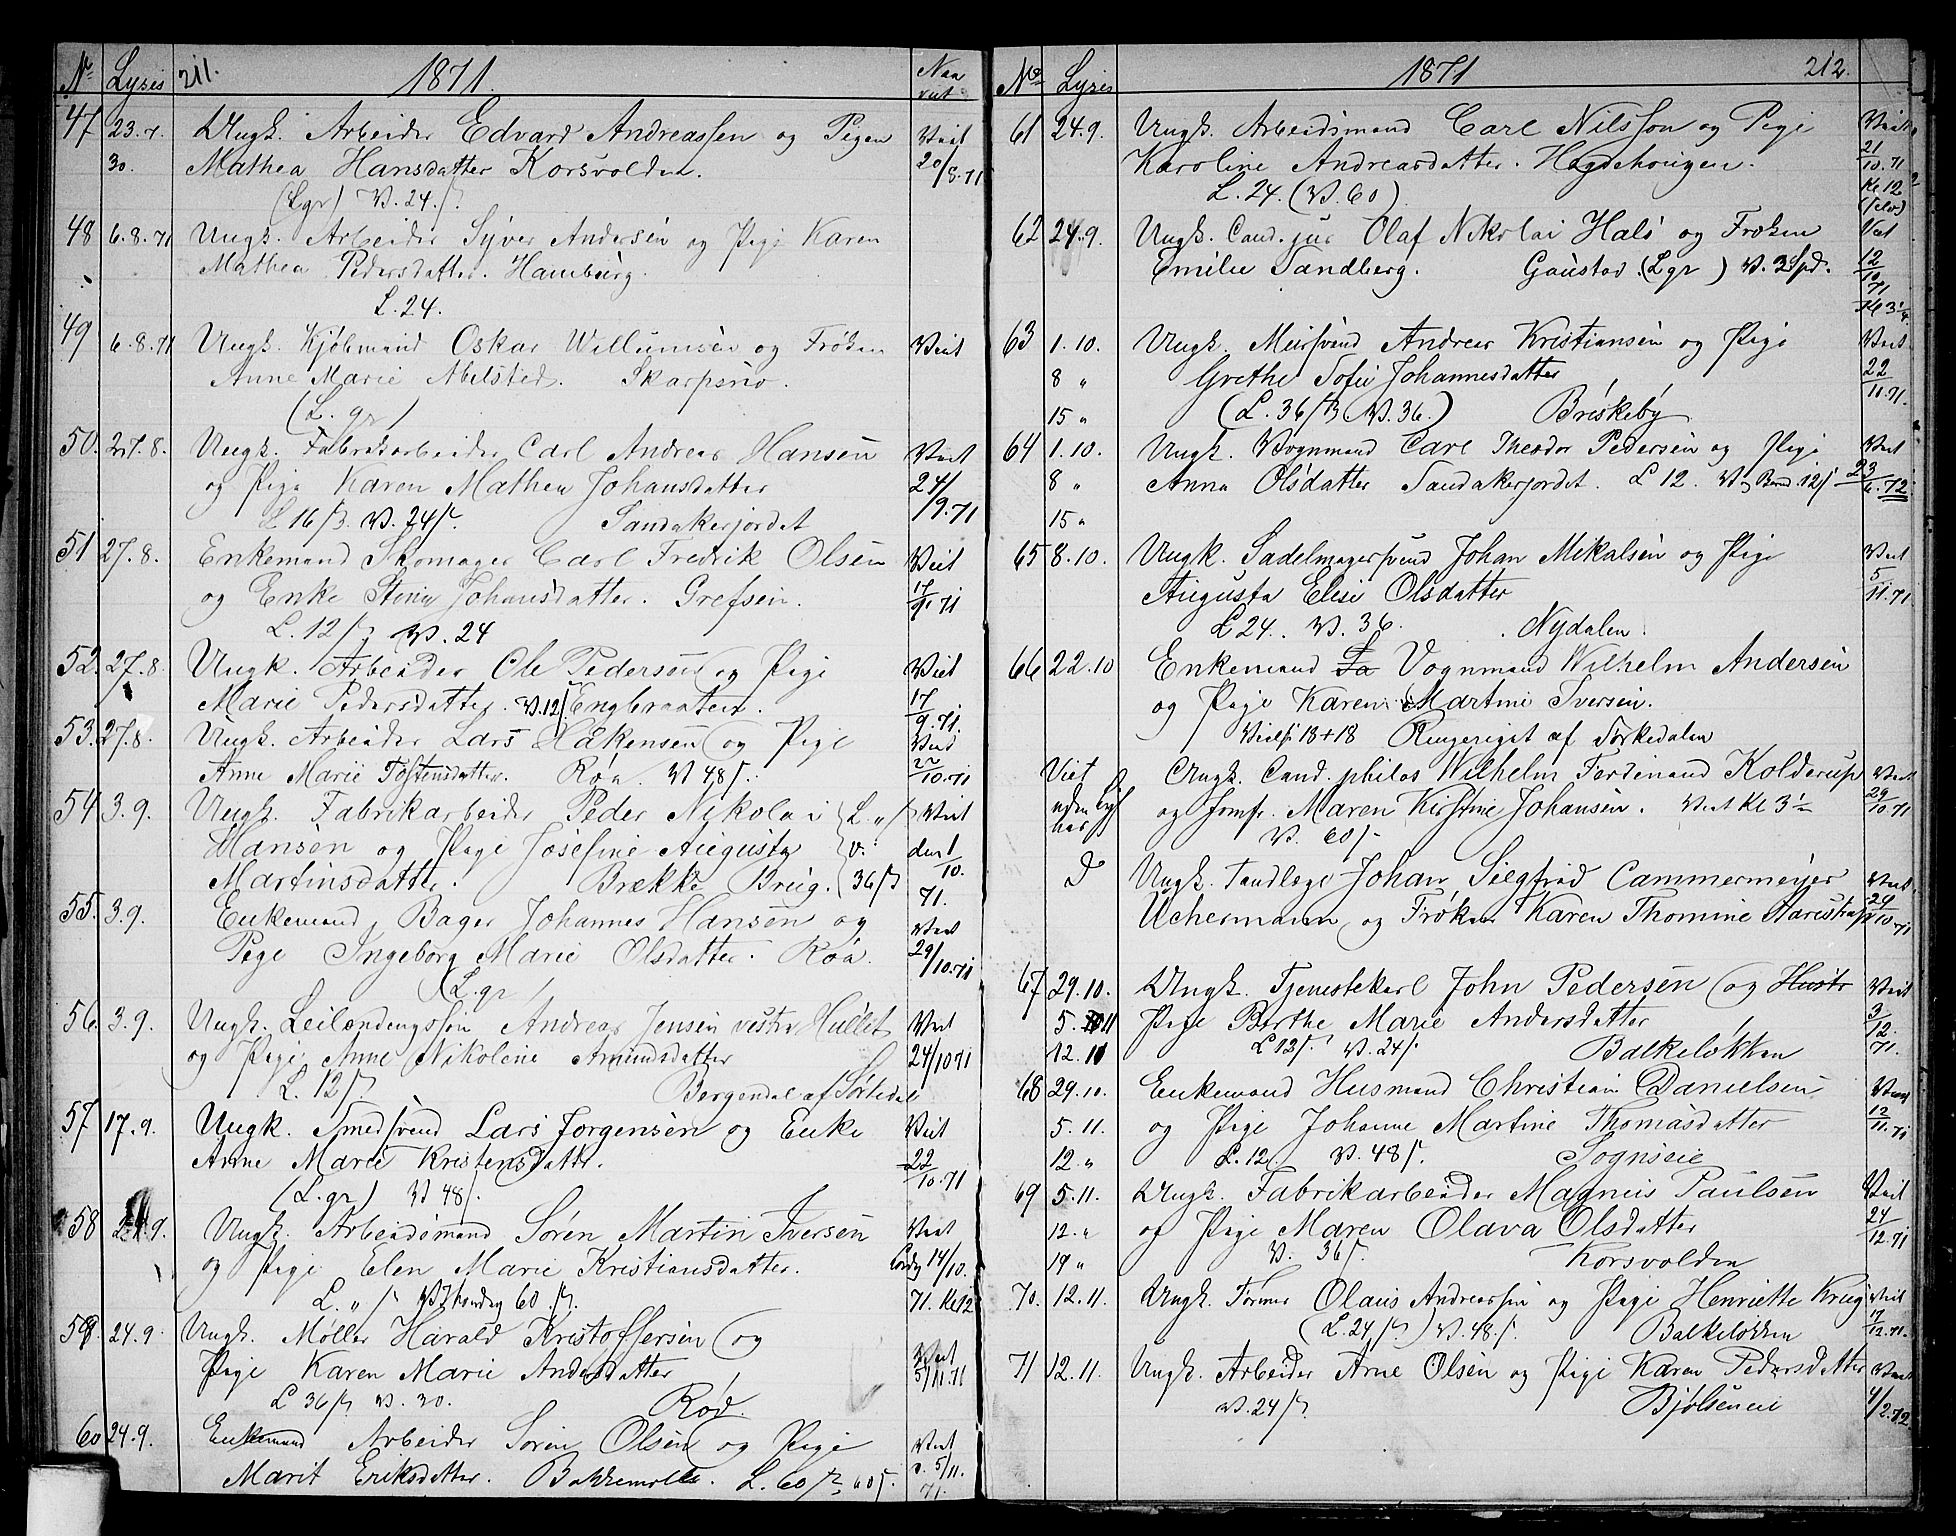 No Lysis 211. 1871. Naar viet
47 23.7. Ungk. Arbeider Edvard Andreassen og Pigen Viet
30. Mathea Hansdatter Korsvolden. 20/8.71
(Lgr) V. 24 ß.
48 6.8.71 Ungk. Arbeider Syver Andersen og Pige Karen
Mathea Pedersdatter. Hamburg.
L. 24.
49 6.8.71 Ungk. Kjøbmand Oskar Willumsen og Frøken Viet
Anne Marie Abelsted. Skarpsno.
(L. gr)
50. 27.8. Ungk. Fabrikarbeider Carl Andreas Hansen Viet
og Pige Karen Mathea Johansdatter 24/9.71
L 16 ß. V. 24 ß. Sandakerjordet
51 27.8. Enkemand Skomager Carl Fredrik Olsen Viet
og Enke Stina Johansdatter. Grefsen. 17/9.71
L. 12 ß V. 24
52. 27.8 Ungk. Arbeider Ole Pedersen og Pige Viet
Marie Pedersdatter. V. 12 ß Engbraaten. 17/9.71.
53. 27.8. Ungk. Arbeider Lars Håkensen og Pige Viet
Anne Marie Tostensdatter. Røa. V 48 ß. 22/10.71
54 3.9. Ungk. Fabrikarbeider Peder Nikolai L. „ ß Viet
Hansen og Pige Josefine Augusta V. den 1/10.
Martinsdatter. Brekke Brug. 36 ß 71.
55. 3.9. Enkemand, Bager Johannes Hansen og Viet
Pige Ingeborg Marie Olsdatter. Røa. 29/10.71
(L. gr)
56 3.9. Ungk. Leilændingssøn Andreas Jensen vestre Hullet Viet
og Pige Anne Nikoline Amundsdatter 24/10 71
L. 12 ß Bergendal af Sørkedal
57 17.9. Ungk. Smedsvend Lars Jørgensen og Enke Viet
Anne Marie Kristensdatter. 22/10.71
(L. gr) V 48 ß.
58 24.9. Ungk. Arbeidsmand Søren Martin Iversen Viet
og Pige Elen Marie Kristiansdatter. Lørdg 14/10.
L. „ ß V 60 ß. 71. Kl 12
59 24.9. Ungk. Møller Harald Kristoffersen og
Pige Karen Marie Andersdatter Viet 5/11.71
L 36 ß V. 30. Rød.
60 24.9. Enkemand Arbeider Søren Olsen og Pige Viet
Marit Eriksdatter. Bakkemølle. L. 60 ß 60 ß. d. 5/11. 71.
No Lysis 1871 212.
61 24.9. Ungk. Arbeidsmand Carl Nilsson og Pige Viet
Karoline Andreasdatter. Hegdehougen. 21/10.71
L. 24. (V. 60) Kl 12
62 24.9. Ungk. Cand. jur Olaf Nikolai Hals og Frøken Viet
Emilie Sandberg. Gaustad. (Lgr) V. 3 Spd. 12/10 71
63 1.10. Ungk. Mursvend Andreas Kristiansen og Pige Viet
8 „ Grethe Sofie Johannesdatter 22/11.71.
15 „ (L. 36 ß V. 36.) Briskeby
64 1.10. Ungk. Vognmand Carl Theodor Pedersen og Pige Viet
8 „ Anna Olsdatter Sandakerjordet. L 12. 12 ß 23/6.72
15 „
65 8.10. Ungk. Sadelmagersvend Johan Mikalsen og Pige Viet
Augusta Elise Olsdatter 5/11.71
L 24. V. 36. Nydalen.
66 22.10 Enkemand Vognmand Wilhelm Andersen
og Pige Karen Martine Iversen.
18+18 Ringeriget af Sørkedalen
Viet Ungk. Cand. philos Wilhelm Ferdinand Kolderup Viet
uden Lys her og Jomfr. Maren Kirstine Johansen. Viet Kl 3 29/10.71
V. 60 ß
D Ungk. Tandlæge Johan Siegfrid Cammermeyer Viet
Uchermann og Frøken Karen Thomine 29/10.71
67 29.10. Ungk. Tjenestekarl John Pedersen og Hustr Viet
5. 11 Pige Berthe Marie Andersdatter 3/12.
12.11 L 12 ß. V. 24 ß Balkeløkken 71.
68 29.10. Enkemand Husmand Christian Danielsen Viet
5.11. og Pige Johanne Martine Thomasdatter 12/11.71
12. „ L. 12. V. 48 ß. Sognseie
69 5.11. Ungk. Fabrikarbeider Magnus Paulsen Viet
12. „ og Pige Maren Olava Olsdatter 24/12.71
19 „ V. 36 ß. Korsvolden
70. 12.11. Ungk. Former Olaus Andreassen og Pige Henriette Krug Viet
(L. 24 ß) V. 48 ß. Balkeløkken 17/12.71.
71 12.11. Ungk. Arbeider Arne Olsen og Pige Karen Pedersdatter Viet
V. 24 ß. Bjølseneie 4/2.72.